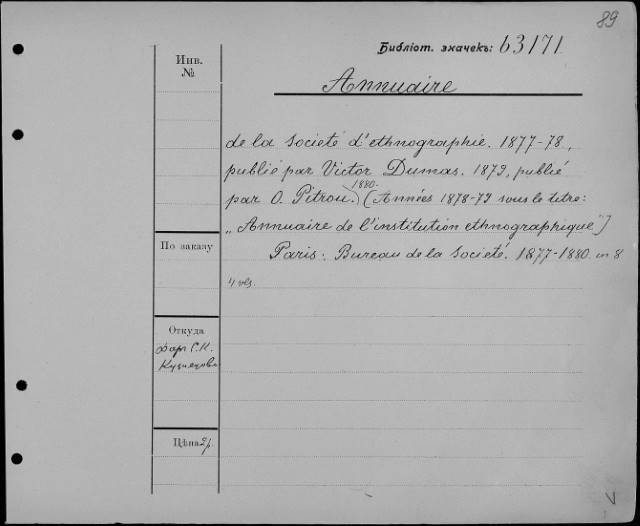 89
Библіот. значекъ: 63171
Инв.
№
Annuaire
de la Société d'ethnographie. 1877-78,
publié par Victor Dumas. 1879, publié
1880.
par O. Pitrou. (Années 1878-79 sous le titre:
„Annuaire de l'institution ethnographique")
По заказу
Paris: Bureau de la Société. 1877-1880. in 8
4 vls.
Откуда
Дар С.К.
Кузнецова
Цѣна 2р.
V